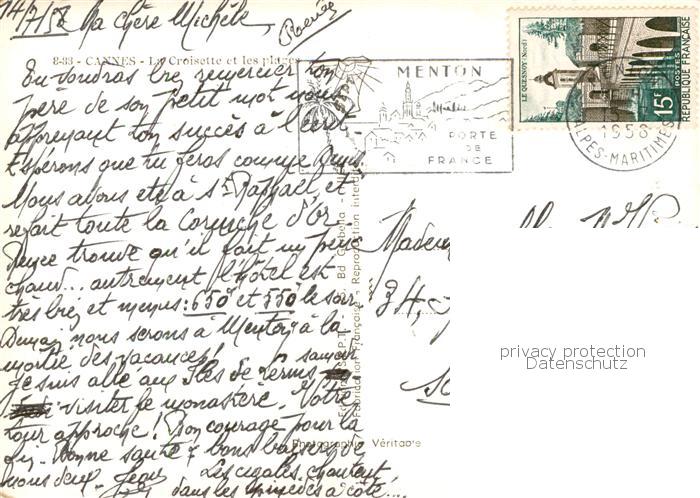 14/7/58 Ma chère Michèle,
8-83 - CANNES - La Croisette et les plages
Tu voudras bien remercier ton
père de son petit mot nous
apprenant ton succès à l'écrit.
Espérons que tu feras comme
Nous avons été à St Raphaël et
refait toute la Corniche d'Or
trouve qu'il fait un peu
chaud... autrement l'hôtel est
très bien et menus : 650 et 550 le soir
Demain nous serons à Menton à la
moitié des vacances! samedi
je suis allé aux Iles de Lerins
visiter le monastère. Votre
tour approche! Bon courage pour la
fin. Bonne santé & bons baisers de
nous deux. Jean Les cigales chantent
dans les pinèdes à côté....
MENTON
PORTE
DE
FRANCE
LE QUESNOY (Nord)
15F
POSTES
REPUBLIQUE FRANÇAISE
1958
ALPES-MARITIMES
Fabrication Française - Reproduction interdite
Photographie Véritable
34,
privacy protection
Datenschutz